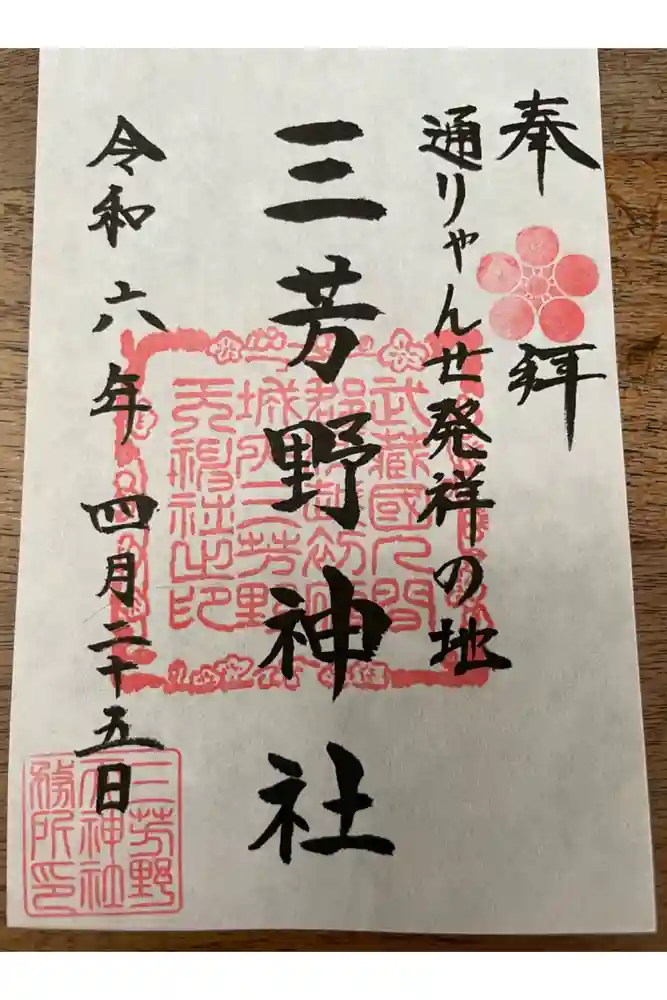 奉拝
通りゃんせ発祥の地
三芳野神社
令和六年 四月二十五日
武蔵國入間
天神社之印
三芳野
神社
務所印